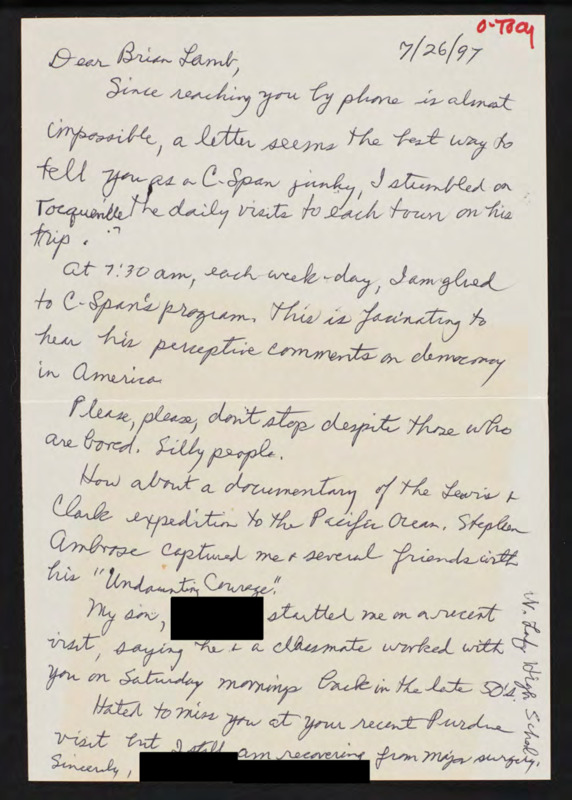 O-Tocq
7/26/97
Dear Brian Lamb,
Since reaching you by phone is almost
impossible, a letter seems the best way to
tell you as a C-Span junky, I stumbled on
Tocqueville the daily visits to each town on his
trip.
At 7:30 am, each week-day, I am glued
to C-Span's program. This is fascinating to
hear his perceptive comments on democracy
in America.
Please, please, don't stop despite those who
are bored. Silly people.
How about a documentary of the Lewis +
Clark expedition to the Pacific Ocean. Stephen
Ambrose captured me + several friends with
his "Undaunting Courage".
My son, startled me on a recent
visit, saying he + a classmate worked with
you on Saturday mornings back in the late 50's.
W. Laf High School
Hated to miss you at your recent Purdue
visit but I still am recovering from major surgery.
Sincerely,